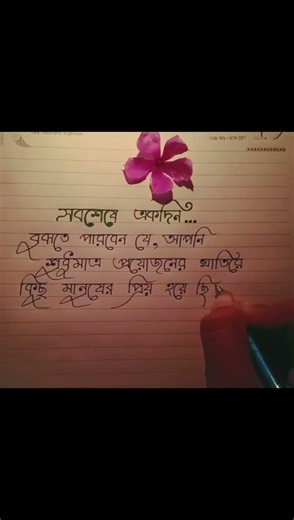 সবশেষে একদিন...
বুঝতে পারবেন যে, আপনি
শুধুমাত্র প্রয়োজনের খাতিরে
কিছু মানুষের প্রিয় হয়ে ছি